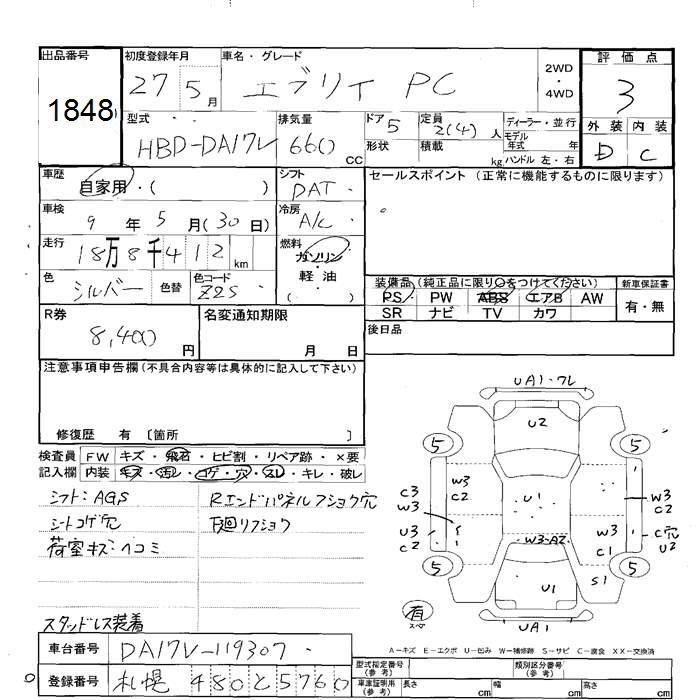 出品番号
1848
初度登録年月
27 5月
車名・グレード
エブリイ PC
2WD
・
4WD
評価点
3
型式
HBD-DA17V
排気量
660 cc
ドア
5
形状
定員
2(4)人
積載
kg
ディーラー・並行
モデル
年式 年
ハンドル 左・右
外装 内装
D C
車歴
自家用・( )
シフト
DAT
セールスポイント (正常に機能するものに限ります)
車検
9年5月(30日)
冷房
A/C
走行
18万8千412km
燃料
ガソリン
・
軽油
( )
色
シルバー
色替
色コード
Z2S
装備品(純正品に限り○をつけてください)
PS PW ABS エアB AW
SR ナビ TV カワ
新車保証書
有・無
R券
8,400円
名変通知期限
月 日
後日品
注意事項申告欄(不具合内容等は具体的に記入して下さい)
修復歴 有 〔箇所 〕
検査員
記入欄
FW キズ・飛石・ヒビ割・リペア跡・×要
内装 キズ・汚レ・コゲ・穴・スレ・キレ・破レ
シフト:AGS
シートコゲ穴
荷室キズ・ヘコミ
スタッドレス装着
Rエンドパネルフショク穴
下廻リフショク
UA1・ワレ
U2
5 5
C3
W3
W3
C2
U1
W3
C2
W3
C2
U3
C2
W3・A2
W3
C1
C穴
U2
5 5
U1
S1
有
スペア
UA1
A-キズ E-エクボ U-凹み W-補修跡 S-サビ C-腐食 XX-交換済
車台番号
DA17V-119307
登録番号
札幌 480 そ 5760
型式指定番号
(参考)
類別区分番号
(参考)
車庫証明用
(参考)
長さ cm 幅 cm 高さ cm